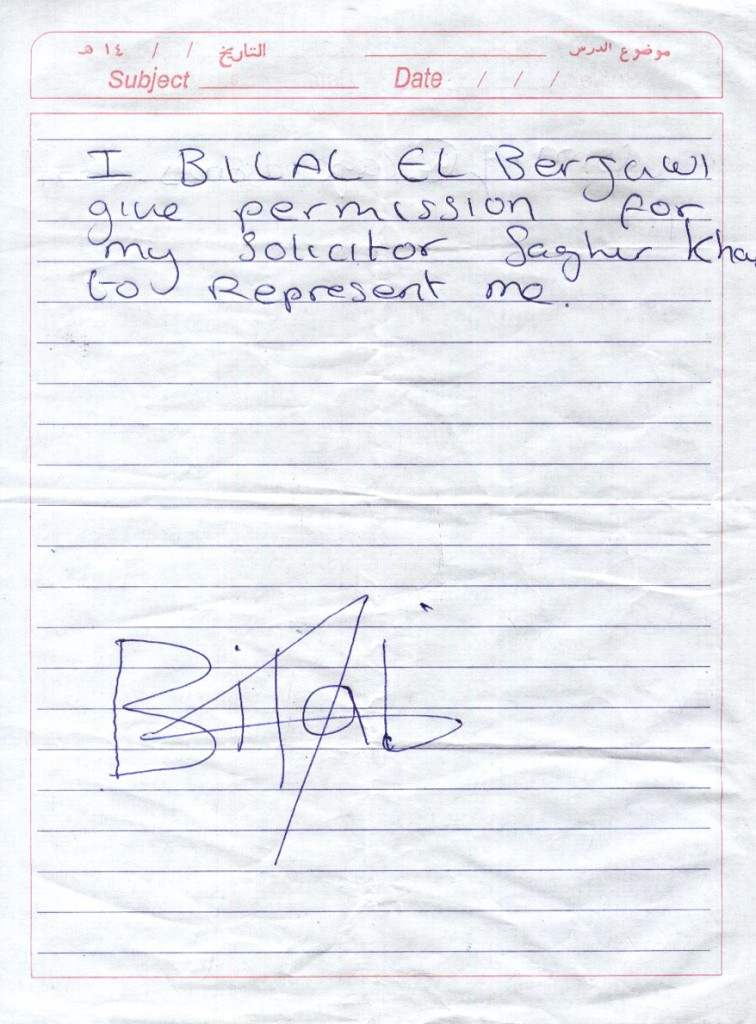 موضوع الدرس التاريخ / / ١٤ هـ
Subject Date / / /
I BILAL EL Berjawi
give permission for
my Solicitor Saghir Kha
to Represent me.
Bilal